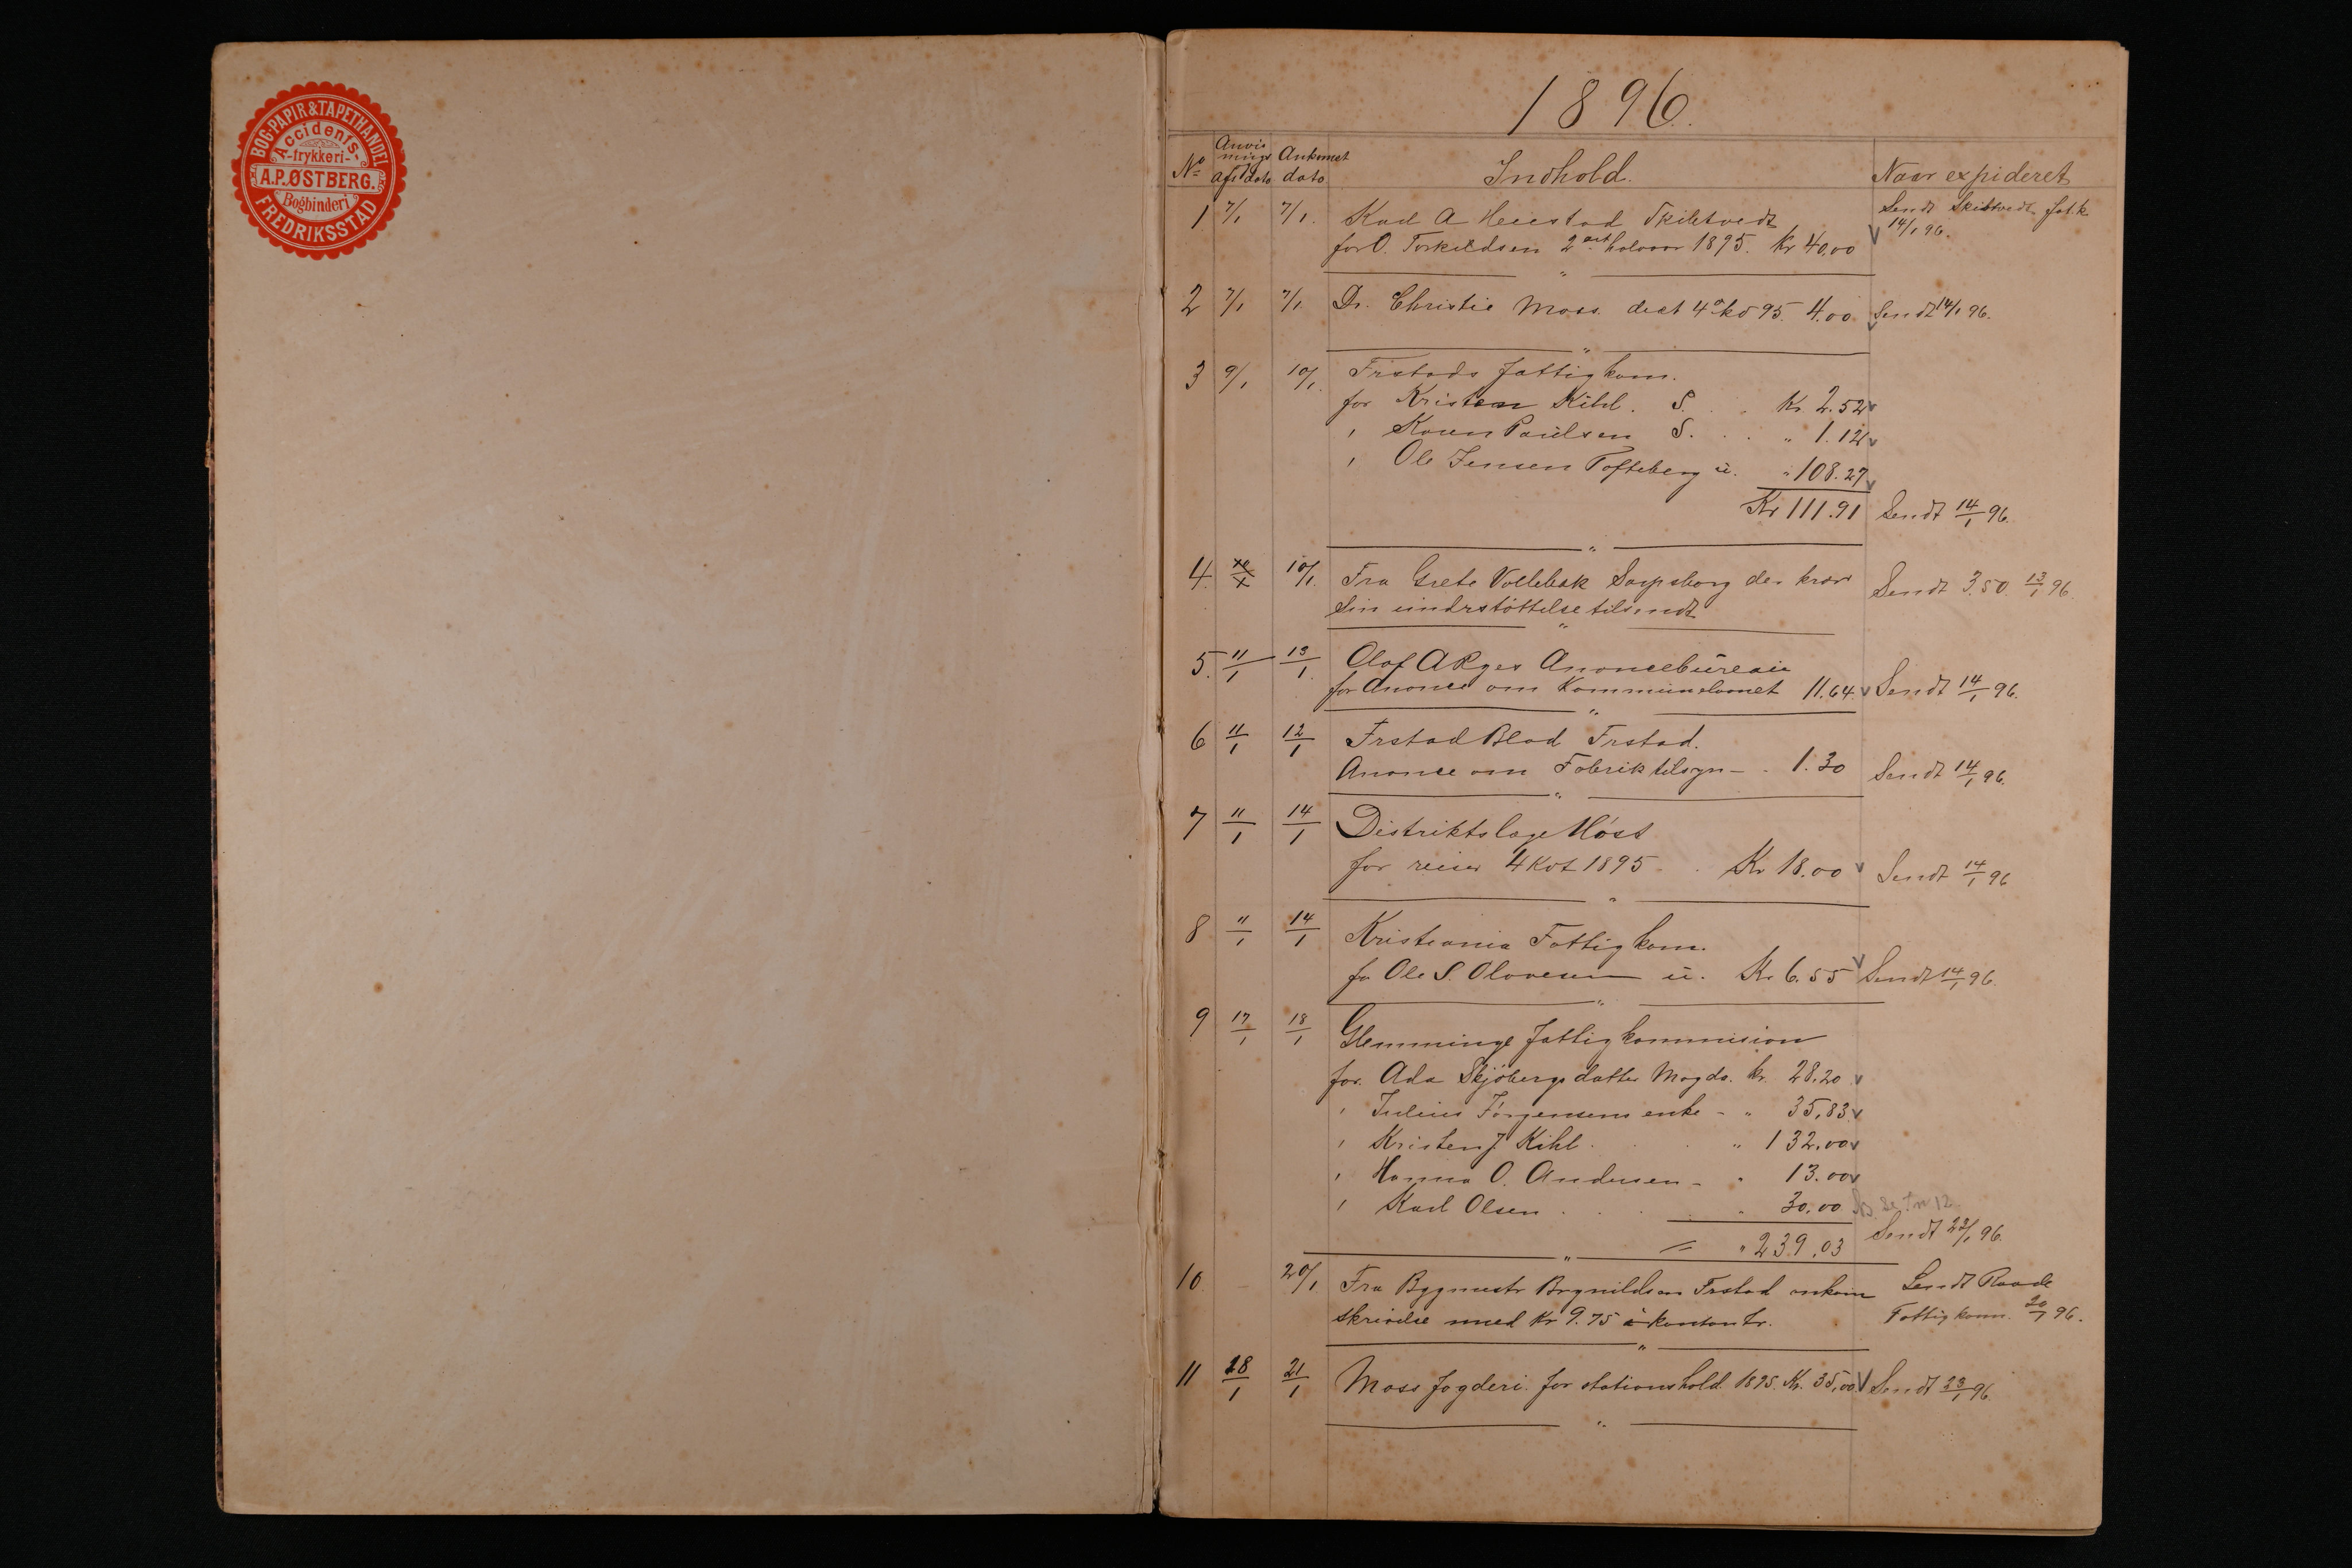 BOG-PAPIR & TAPETHANDEL
Accidents-
-trykkeri-
A.P. ØSTBERG.
Bogbinderi
FREDRIKSSTAD
1896.
No Anvisnings Afs dato Ankomst dato Indhold. Naar expideret
1 7/1 7/1. Karl A Heiestad Skibtvedt Sendt Skibtvedt fat.k.
for O. Torkildsen 2det halvaar 1895. Kr 40.00 V 14/1 96.
2 7/1 7/1 Dr. Christie Moss. 95. 4.00 Sendt 14/1 96.
3 9/1 10/1. Frstads fattigkom.
for Kristen Kihl. S. . . Kr. 2.52 v
, Karen Paulsen S. . . " 1.12 v
, Ole Jensen Tofteberg u. " 108.27 v
Kr 111.91 Sendt 14/1 96.
4. 10/1. Fra Grete Vollebæk Sarpsborg der kræver Sendt 3.50 13/1 96.
sin undrstöttelse tilsendt
5. 11/1 13/1. Olaf A Ryes Anoncebüreau
for Anonce om Kommunelaanet 11.64. v Sendt 14/1 96.
6 11/1 12/1 Frstad Blad Frstad.
Anonce om Fabriktilsyn - . 1.30 Sendt 14/1 96.
7 11/1 14/1 Distriktslæge Höst
for reiser 4 Kvt 1895 . . Kr 18.00 v Sendt 14/1 96
8 11/1 14/1 Kristiania Fattigkom.
for Ole S. Olavesen u. Kr 6.55 v Sendt 14/1 96.
9 17/1 18/1 Glemminge fattigkommision
for. Ada Skjöbergsdatter Magds. kr. 28.20 v
, Julius Jörgensens enke - " 35,83 v
, Kristen J Kihl . . " 132.00 v
, Hanna O. Andersen - " 13.00 v
, Karl Olsen . . . " 30.00 12
= " 239.03 Sendt 23/1 96.
10 20/1 Fra Bygmestr Brynildsen Frstad ankom Sendt Raade
skrivelse med Kr 9.75 i kontanter. Fattigkom. 20/1 96.
11 18/1 21/1 Moss fogderi. for stationshold 1895. Kr. 35,00 V Sendt 23/1 96.